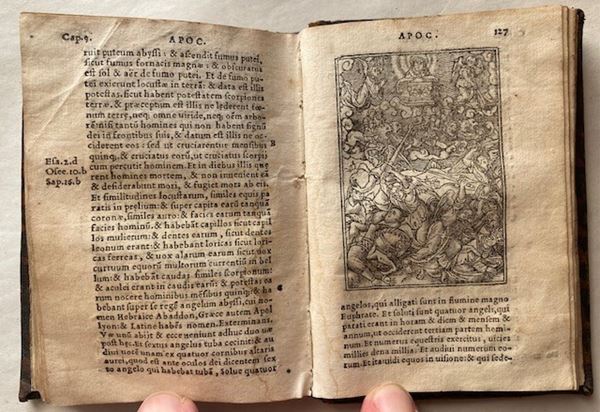 Cap.9.
APOC.
ruit puteum abyssi: & ascendit fumus putei,
sicut fumus fornacis magnæ: & obscuratus
est sol & aër de fumo putei. Et de fumo pu
tei exierunt locustæ in terrā: & data est illis
potestas, sicut habent potestatem scorpiones
terræ. & præceptum est illis ne læderent fœ-
num terræ, neq; omne viride, neq; oēm arbo-
rē: nisi tantū homines qui non habent signū
dei in frontibus suis, & datum est illis ne oc-
ciderent eos: sed ut cruciarentur mensibus
B
quinq;, & cruciatus eorū, ut cruciatus scorpij
cum percutit hominem. Et in diebus illis quę
rent homines mortem, & non invenient eā
& desiderabunt mori, & fugiet mors ab eis.
Esa.2.d
Osee.10.b
Sap.16.b
Et similitudines locustarum, similes equis pa
ratis in prelium: & super capita earū tanquā
coronæ, similes auro: & facies earum tanquā
facies hominū. & habebāt capillos sicut capil
los mulierum: & dentes earum, sicut dentes
leonum erant: & habebant loricas sicut lori-
cas ferreas, & uox alarum earum sicut uox
curruum equorū multorum currentiū in bel
lum: & habebāt caudas similes scorpionum:
& aculei erant in caudis earū: & potestas ea
rum nocere hominibus mēsibus quinq;: & ha
bebant super se regē angelum abyssi, cui no-
men Hebraice Abaddon, Græce autem Apol
lyon: & Latine habēs nomen, Exterminans.
Væ unū abijt & ecce veniunt adhuc duo uæ
post hęc. Et sextus angelus tuba cecinit: & au
diui uocē unam ex quatuor cornibus altaris
aurei, quod est ante oculos dei dicentem sex
to angelo qui habebat tubā, Solue quatuor
APOC.
127
angelos, qui alligati sunt in flumine magno
Euphrate. Et soluti sunt quatuor angeli, qui
parati erant in horam & diem & mensem &
annum, ut occiderent tertiam partem homi-
num. Et numerus equestris exercitus, uicies
millies dena millia. Et audiui numerum eo-
rum. Et ita uidi equos in uisione: & qui sede-